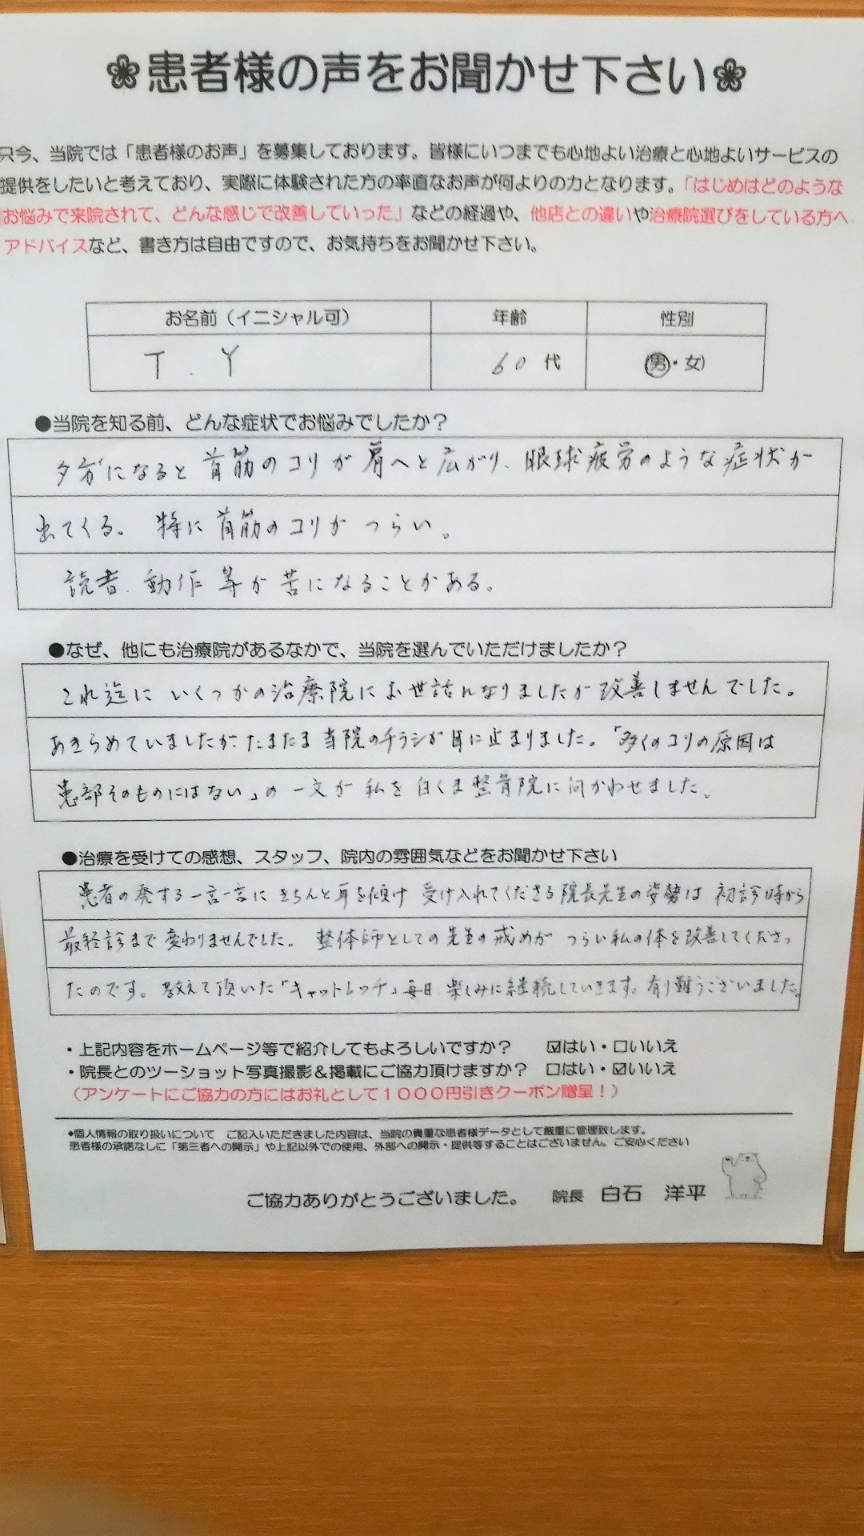 ❀患者様の声をお聞かせ下さい❀
只今、当院では「患者様のお声」を募集しております。皆様にいつまでも心地よい治療と心地よいサービスの
提供をしたいと考えており、実際に体験された方の率直なお声が何よりの力となります。「はじめはどのような
お悩みで来院されて、どんな感じで改善していった」などの経過や、他店との違いや治療院選びをしている方へ
アドバイスなど、書き方は自由ですので、お気持ちをお聞かせ下さい。
お名前（イニシャル可） 年齢 性別
T . Y 60代 男・女
●当院を知る前、どんな症状でお悩みでしたか？
夕方になると首筋のコリが肩へと広がり、眼球疲労のような症状が
出てくる。特に首筋のコリがつらい。
読書、動作等が苦になることがある。
●なぜ、他にも治療院があるなかで、当院を選んでいただけましたか？
これ迄にいくつかの治療院にお世話になりましたが改善しませんでした。
あきらめていましたが、たまたま当院のチラシが目に止まりました。「多くのコリの原因は
患部そのものにはない」の一文が私を白くま整骨院に向かわせました。
●治療を受けての感想、スタッフ、院内の雰囲気などをお聞かせ下さい
患者の発する一言一言にきちんと耳を傾け受け入れてくださる院長先生の姿勢は初診時から
最終診まで変わりませんでした。整体師としての先生の戒めがつらい私の体を改善してくださっ
たのです。教えて頂いた「キャットレッチ」毎日楽しみに継続していきます。有り難うございました。
・上記内容をホームページ等で紹介してもよろしいですか？ ☑はい・□いいえ
・院長とのツーショット写真撮影＆掲載にご協力頂けますか？ □はい・☑いいえ
（アンケートにご協力の方にはお礼として１０００円引きクーポン贈呈！）
●個人情報の取り扱いについて ご記入いただきました内容は、当院の貴重な患者様データとして厳重に管理致します。
患者様の承諾なしに「第三者への開示」や上記以外での使用、外部への開示・提供等することはございません。ご安心ください
ご協力ありがとうございました。 院長 白石 洋平